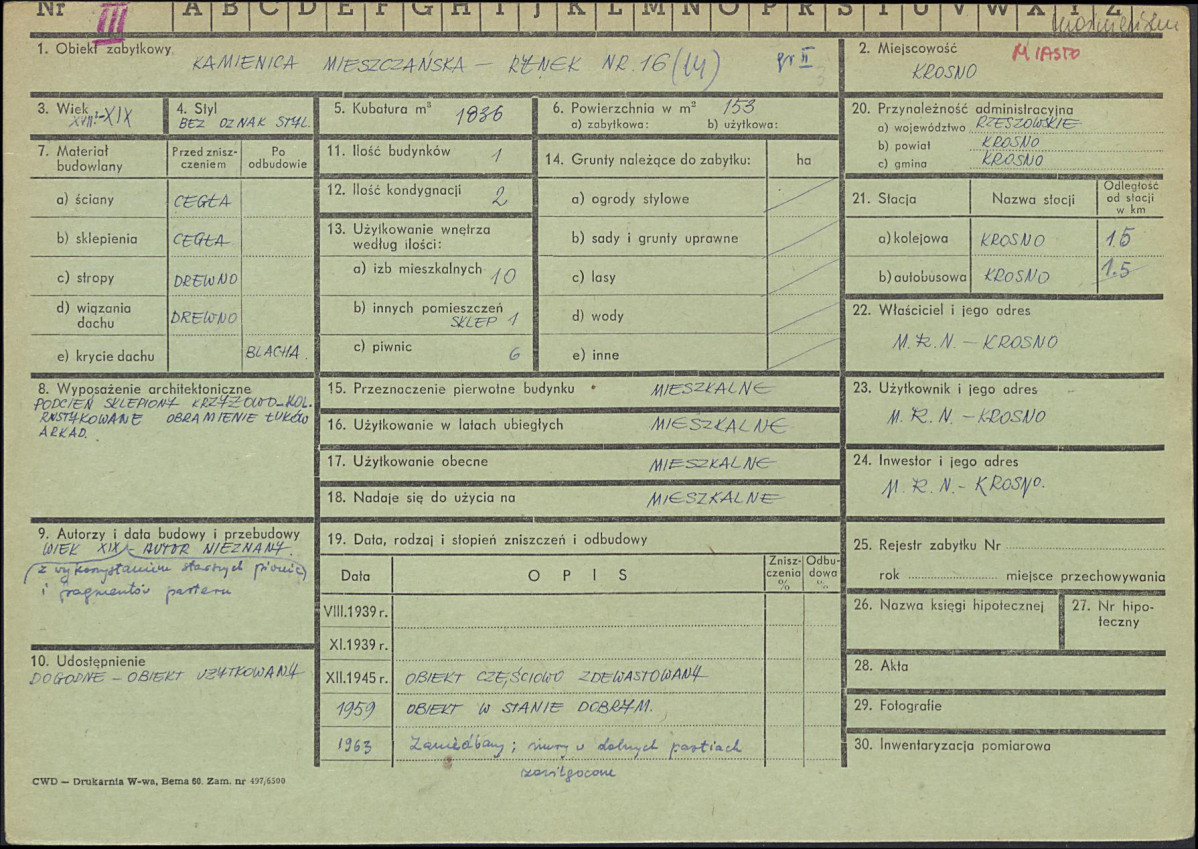 Nr III A B C D E F G H I J K L M N O P R S T U V W X Y Z
1. Obiekt zabytkowy
KAMIENICA MIESZCZAŃSKA – RYNEK NR. 16 (14) gr II
3
2. Miejscowość MIASTO
KROSNO
3. Wiek
XVIII-XIX
4. Styl
BEZ OZNAK STYL.
5. Kubatura m³ 1836
6. Powierzchnia w m² 153
a) zabytkowa: b) użytkowa:
20. Przynależność administracyjna
a) województwo RZESZOWSKIE
b) powiat KROSNO
c) gmina KROSNO
7. Materiał budowlany
Przed znisz-
czeniem
Po
odbudowie
a) ściany CEGŁA
b) sklepienia CEGŁA
c) stropy DREWNO
d) wiązania
dachu DREWNO
e) krycie dachu BLACHA.
11. Ilość budynków 1
12. Ilość kondygnacji 2
13. Użytkowanie wnętrza
według ilości:
a) izb mieszkalnych 10
b) innych pomieszczeń
SKLEP 1
c) piwnic 6
14. Grunty należące do zabytku: ha
a) ogrody stylowe
b) sady i grunty uprawne
c) lasy
d) wody
e) inne
21. Stacja Nazwa stacji
Odległość
od stacji
w km
a) kolejowa KROSNO 1.5
b) autobusowa KROSNO 1.5
22. Właściciel i jego adres
M. R. N. – KROSNO
8. Wyposażenie architektoniczne
PODCIEŃ SKLEPIONY KRZYŻOWO-KOL.
RUSTYKOWANE OBRAMIENIE ŁUKÓW
ARKAD.
15. Przeznaczenie pierwotne budynku MIESZKALNE
16. Użytkowanie w latach ubiegłych MIESZKALNE
17. Użytkowanie obecne MIESZKALNE
18. Nadaje się do użycia na MIESZKALNE
23. Użytkownik i jego adres
M. R. N. – KROSNO
24. Inwestor i jego adres
M. R. N. – KROSNO.
9. Autorzy i data budowy i przebudowy
WIEK XIX – AUTOR NIEZNANY.
(z wykorzystaniem starszych piwnic)
i fragmentów parteru
10. Udostępnienie
DOGODNE – OBIEKT UŻYTKOWANY
19. Data, rodzaj i stopień zniszczeń i odbudowy
Data OPIS
Znisz-
czenia
%
Odbu-
dowa
%
VIII.1939 r.
XI.1939 r.
XII.1945 r. OBIEKT CZĘŚCIOWO ZDEWASTOWANY
1959 OBIEKT W STANIE DOBRYM.
1963 Zaniedbany; mury w dolnych partiach
zawilgocone
25. Rejestr zabytku Nr
rok miejsce przechowywania
26. Nazwa księgi hipotecznej
27. Nr hipo-
teczny
28. Akta
29. Fotografie
30. Inwentaryzacja pomiarowa
CWD — Drukarnia W-wa, Bema 60. Zam. nr 497/6500